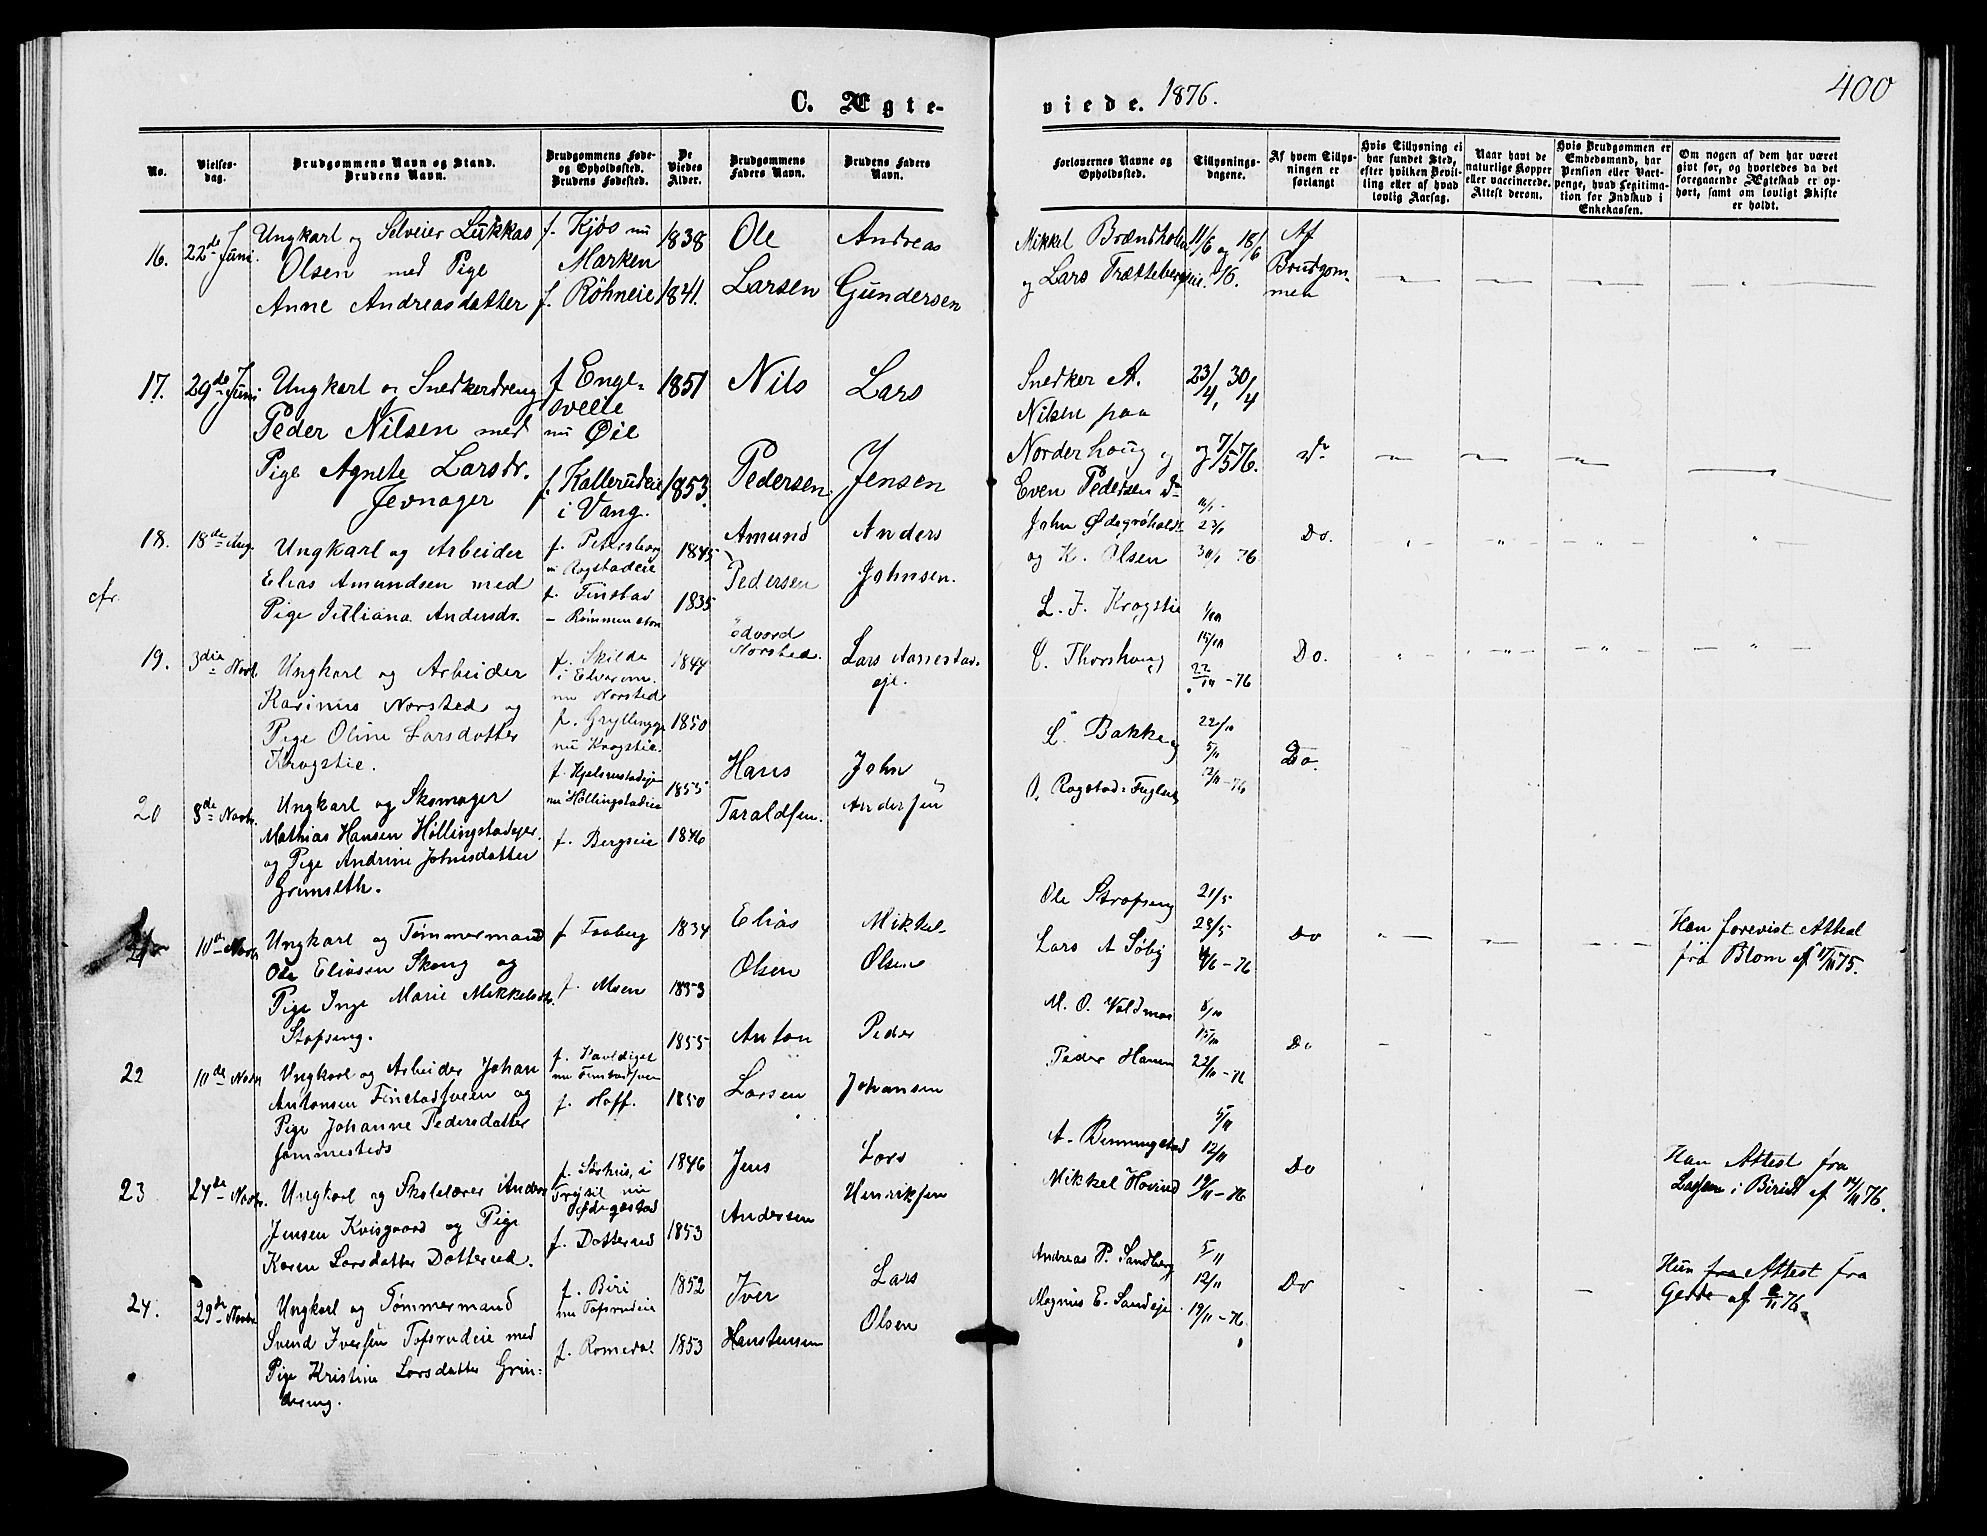 400
C. Ægte-
viede. 1876.
No.
Vielses-
dag.
Brudgommens Navn og Stand.
Brudens Navn.
Brudgommens Føde-
og Opholdssted.
Brudens Fødested.
De
Viedes
Alder.
Brudgommens
Faders Navn.
Brudens Faders
Navn.
Forlovernes Navne og
Opholdssted.
Tillysnings-
dagene.
Af hvem Tillys-
ningen er
forlangt
Hvis Tillysning ei
har fundet Sted,
efter hvilken Bevil-
ling eller af hvad
lovlig Aarsag.
Naar havt de
naturlige Kopper
eller vaccinerede.
Attest derom.
Hvis Brudgommen er
Embedsmand, har
Pension eller Vart-
penge, hvad Legitima-
tion for Indskud i
Enkekassen.
Om nogen af dem har været
gift før, og hvorledes da det
foregaaende Ægteskab er op-
hørt, samt om lovligt Skifte
er holdt.
16. 22de Juni.
Ungkarl og Selveier Lukkas
Olsen med Pige
Anne Andreasdatter
f. Kjøs nu
Marken
f. Røhneie
1838
1841.
Ole
Larsen
Andreas
Gundersen
Mikkel Brændholen
og Lars Trætteberg
11/6 og 18/6
Af
Brudgom-
men
17. 29de Juni
Ungkarl og Snedkerdreng
Peder Nilsen med
Pige Agnete Larsdr.
Jevnager
f Enge-
svelle
nu Øie
f. Kallerudeie
i Vang.
1851
1853.
Nils
Pedersen.
Lars
Jensen
Snedker A.
Nilsen paa
Norderhoug og
Even Pedersen do
23/4, 30/4
og 7/5 76.
do
18. 18de Aug.
Ungkarl og Arbeider
Elias Amundsen med
Pige Julliana Andersdr.
f. Petersborg
nu Rogstadeie
f. Finstad
1845
1835
Amund
Pedersen
Anders
Johnsen.
John Ødegrøholdt
og K. Olsen
76
Do.
cfr.
19. 3die Novb.
Ungkarl og Arbeider
Karinus Norsted og
Pige Oline Larsdatter
Krogstie.
f. Skilde
i Elverum.
nu Norsted
nu Krogstie.
1844
1850
Edvord
Norsted.
Lars
eje.
L. J. Krogstie
C. Thorshoug
1/10
15/10
22/10 - 76
Do.
20 8de Novbr.
Ungkarl og Skomager
Mathias Hansen Høllingstadejer
og Pige Andrine Johnsdatter
Grimseth.
nu Høllingstadeie
f. Bergseie
1855
1846
Hans
Taraldsen.
John
Andersen
L. Bakke
O. Rogstad
22/10
5/11
12/11 - 76
Do.
10de Novbr
Ungkarl og Tømmermand
Ole Eliasen Skoug og
Pige Inge Marie Mikkelsdr.
Stofseng.
f Faaberg
f. Moen
1834
1853
Elias
Olsen
Mikkel
Olsen
Ole Strofseng
Lars A Søby
21/5
28/5
4/6 - 76
Do
Han forevist Attest
fra Blom af 17/11 75.
22 10de Novbr
Ungkarl og Arbeider Johan
Antonsen Finstadsveen og
Pige Johanne Pedersdatter
sammesteds
nu Finstadsveen
f. Hoff.
1855
1850
Anton
Larsen
Peder
Johansen
M. O. Voldmoe
Peder Hansen
8/10
15/10
22/10 - 76
Do
23 24de Novbr.
Ungkarl og Skolelærer Anders
Jensen Kvisgaard og Pige
Karen Larsdatter Dotterud.
f. Sørhus, i
Trysil nu
Ødegastad
f. Dotterud
1846
1853
Jens
Andersen
Lars
Henriksen
A. Benningstad
Mikkel Hovind
5/11
12/11
19/11 - 76
Do
Han Attest fra
Lassen i Birid af 14/11 76.
24. 29de Novbr
Ungkarl og Tømmermand
Svend Iversen Tofsrudeie med
Pige Kristine Larsdatter Grin-
dseng.
f. Biri
nu Tofsrudeie
f. Romedal
1852
1853
Iver
Hanstensen
Lars
Olsen
Andreas P. Sandberg
Magnus E. Sandeje
5/11
12/11
19/11 - 76
Do
Hun fra Attest fra
af 76